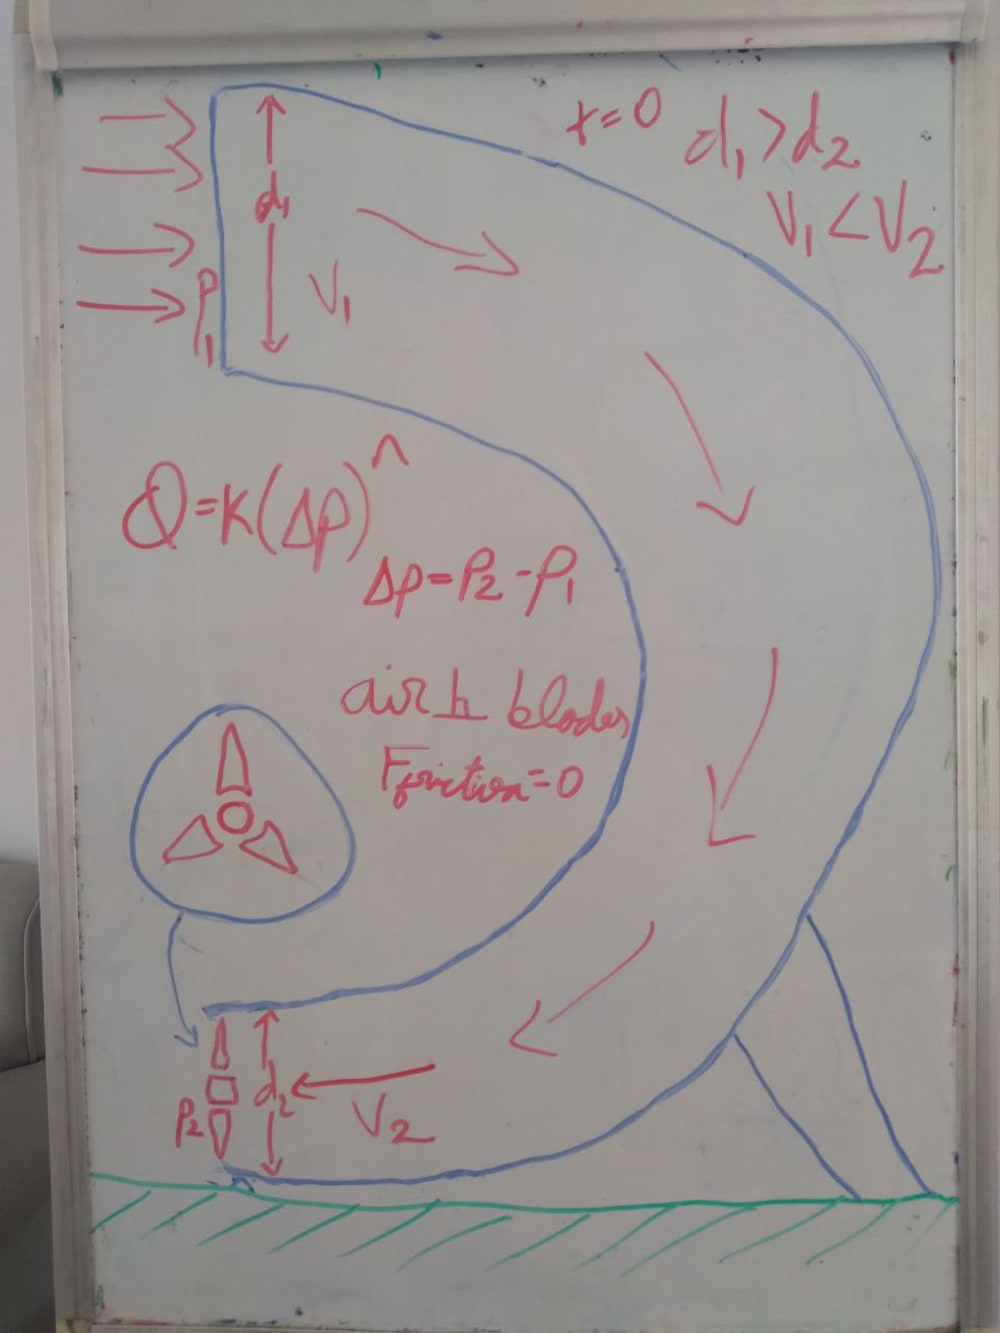 t=0 d₁>d₂
V₁<V₂
d₁
P₁ V₁
Q=K(Δp)^
Δp=P₂-P₁
air ⊥ blades
Ffriction=0
P₂ d₂ V₂